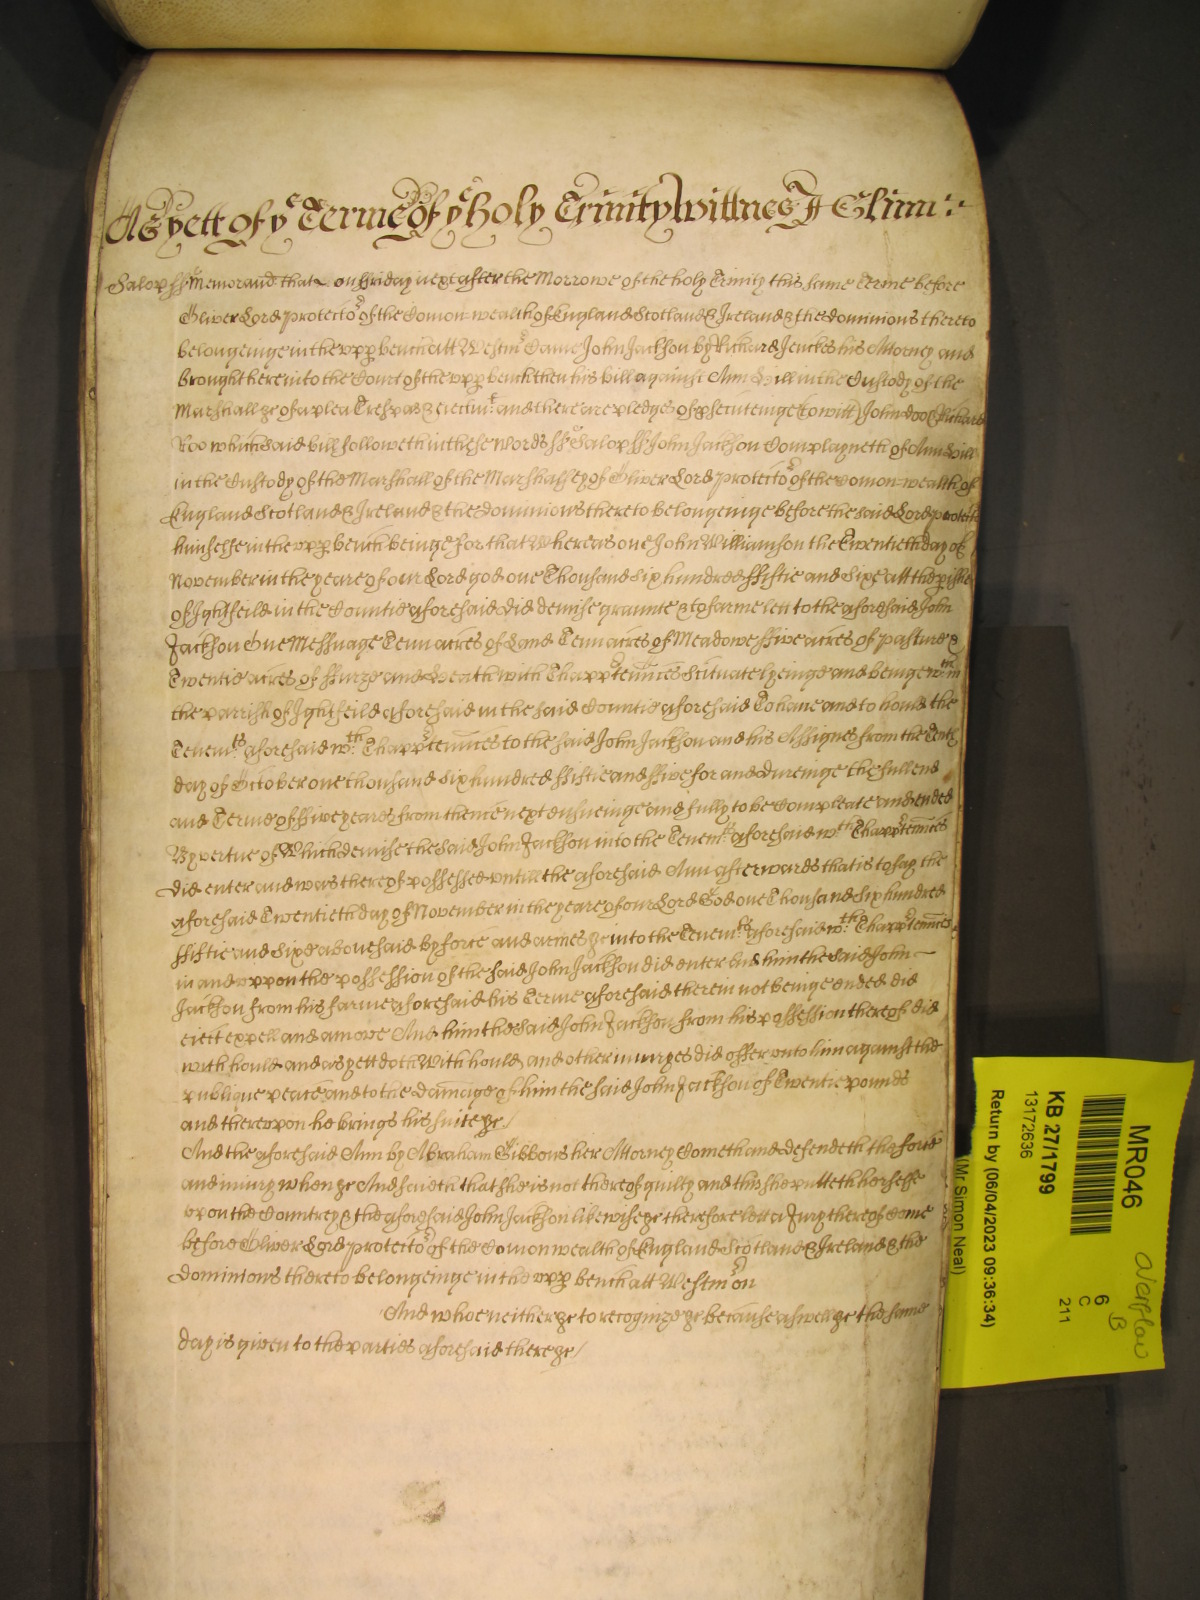 As yett of ye Terme of ye holy Trinity Wittnes J Glinn
Salop ss Memorand that on ffriday next after the Morrowe of the holy Trinity this same terme before
Oliver Lord protector of the Comon-wealth of England Scotland & Ireland & the dominions thereto
belongeinge in the upp bench att Westmr Came John Jackson by Richard Jenckes his Attorney and
brought here into the Court of the upp bench then his bill against Ann in the Custody of the
Marshall &c of a plea Trespas & eiectmt and there are pledges of psecuteinge (to witt) John doo & Richard
Roo which said bill followeth in these words ss Salop ss John Jackson Complayneth of Ann
in the Custody of the Marshall of the Marshalsey of Oliver Lord protector of the Comon-wealth of
England Scotland & Ireland & the dominions thereto belongeinge before the said Lord protector
himselfe in the upp bench beinge for that Whereas one John Williamson the Twentieth day of
November in the yeare of our Lord god one Thousand six hundred ffiftie and Sixe att the pishe
of Ightfeild in the Countie aforesaid did demise graunte & to farme lett to the aforesaid John
Jackson One Messuage Tenn acres of Land Tenn acres of Meadowe ffive acres of pasture &
Twentie acres of ffurze and heath with Thapptennces Scituate lyeinge and beinge wthin
the parrish of Ightfeild aforesaid in the said Countie aforesaid To have and to hould the
Tenemts aforesaid wth Thapptennces to the said John Jackson and his Assignes from the Tenth
day of October one thousand six hundred ffiftie and ffive for and dureinge the full end
and Terme of ffive yeares from thence next ensueinge and fully to be Compleate and ended
By vertue of Which demise the said John Jackson into the Tenemts aforesaid wth Thapptennces
did enter and was thereof possessed untill the aforesaid Ann afterwards that is to say the
aforesaid Twentieth day of November in the yeare of our Lord God one Thousand six hundred
ffiftie and Sixe abovesaid by force and armes &c into the Tenemts aforesaid wth Thapptennces
in and uppon the possession of the said John Jackson did enter And him the said John
Jackson from his farme aforesaid his Terme aforesaid therein not beinge ended did
eiect expell and amove And him the said John Jackson from his possession thereof did
with hould and as yett doth With hould and other iniuryes did offer unto him against the
publique peace and to the damage of him the said John Jackson of Twentie pounds
and thereupon he brings his suite &c/
And the aforesaid Ann by Abraham Gibbons her Attorney Cometh and defendeth the force
and iniury when &c And saieth that she is not thereof guilty and this she putteth herselfe
upon the Countrey & the aforesaid John Jackson likewise &c therefore lett a Jury thereof Come
before Oliver Lord protector of the Comonwealth of England Scotland & Ireland & the
dominions thereto belongeinge in the upp bench att Westmr on
And who neither &c to recognize &c because aswell &c the same
day is given to the parties aforesaid there &c/
MR046
KB 27/1799
13172636
Return by (06/04/2023 09:36:34)
(Mr Simon Neal)
6
C
211
B